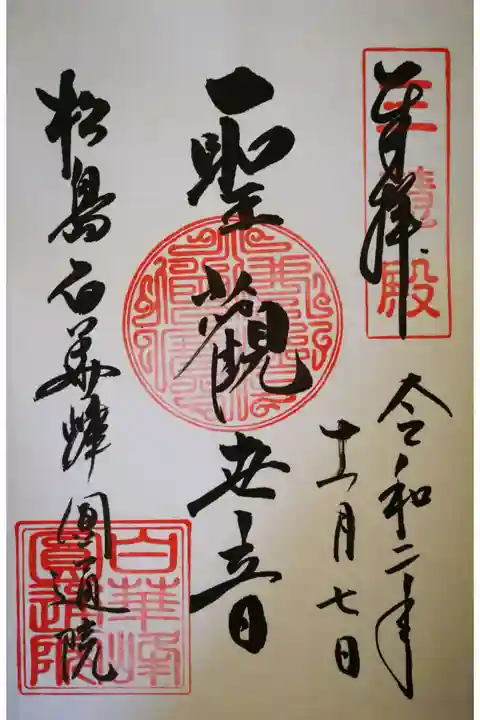 奉拝
三慧殿
令和二年
十一月七日
聖観世音
松島白華峰圓通院
白華峰
圓通院